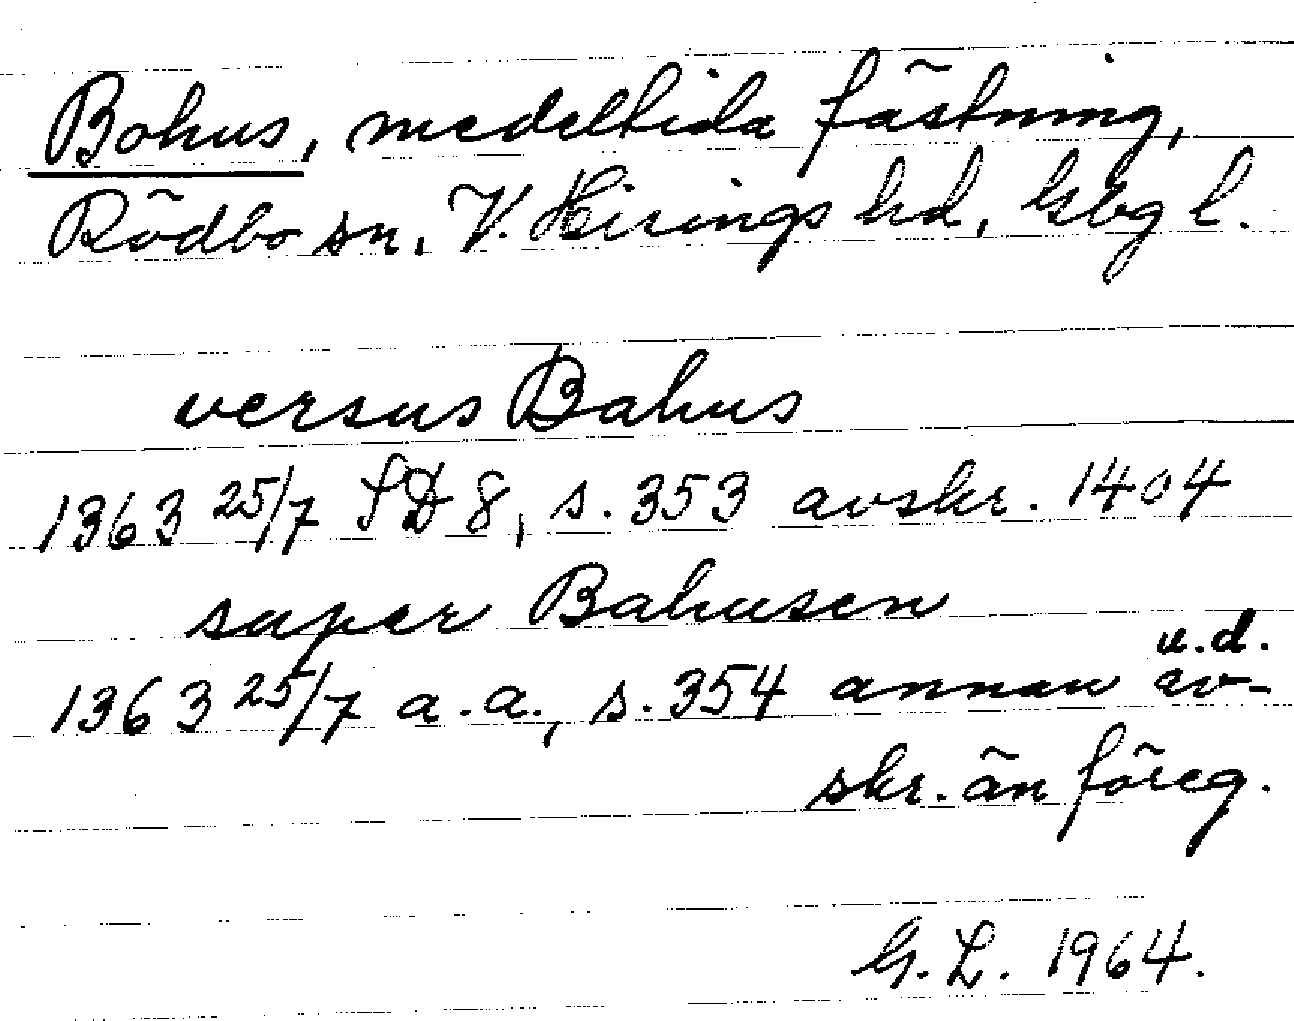 Bohus, medeltida fästning,
Rödbo sn. V. Hisings hd, Gbg l.
versus Bahus
1363 25/7 SD 8, s. 353 avskr. 1404
super Bahusen
u.d.
1363 25/7 a.a., s. 354 annan av-
skr. än föreg.
G. L. 1964.